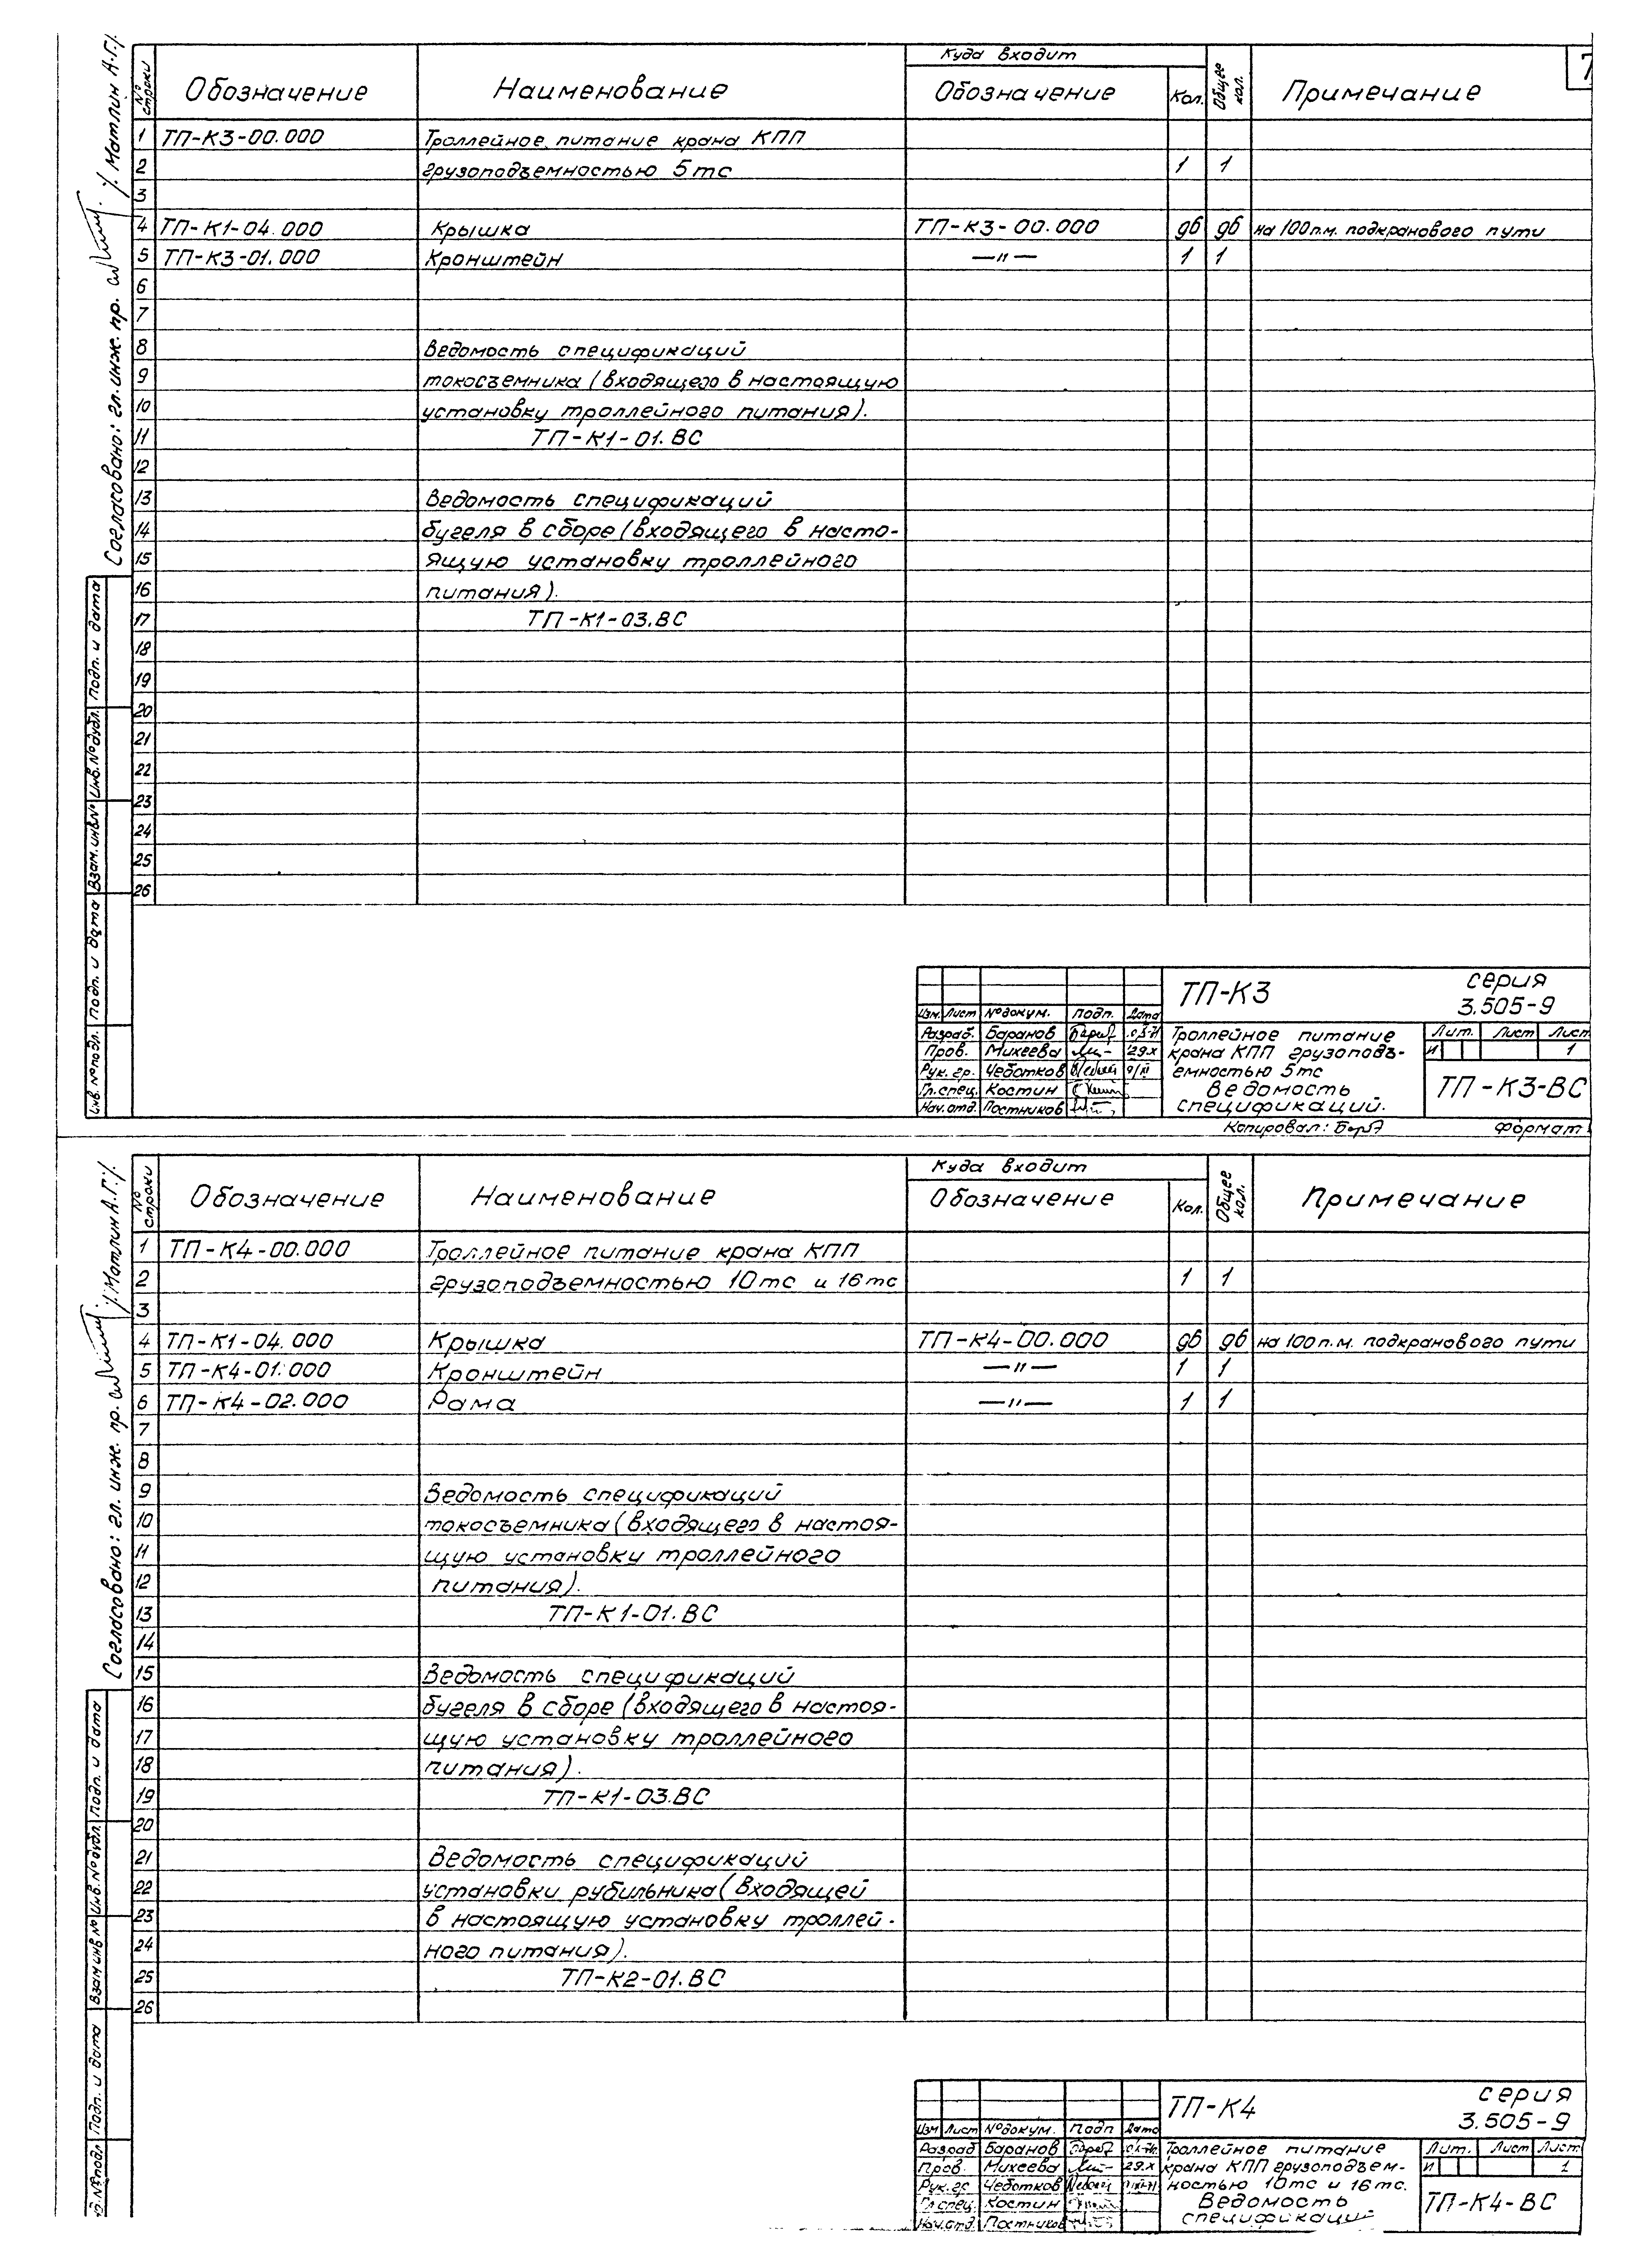 7
№ строки Обозначение Наименование Куда входит Обозначение Кол. Общее кол. Примечание
1 ТП-К3-00.000 Троллейное питание крана КПП
2 грузоподъемностью 5тс 1 1
3
4 ТП-К1-04.000 Крышка ТП-К3-00.000 96 96 на 100 п.м. подкранового пути
5 ТП-К3-01.000 Кронштейн —"— 1 1
6
7
8 Ведомость спецификаций
9 токосъемника (входящего в настоящую
10 установку троллейного питания).
11 ТП-К1-01.ВС
12
13 Ведомость спецификаций
14 бугеля в сборе (входящего в насто-
15 ящую установку троллейного
16 питания).
17 ТП-К1-03.ВС
18
19
20
21
22
23
24
25
26
Согласовано: гл. инж. пр. /Матлин А.Г./
Инв. № подл. Подп. и дата Взам. инв. № Инв. № дубл. Подп. и дата
ТП-К3 серия
3.505-9
Изм. Лист № докум. Подп. Дата
Разраб. Баранов
Пров. Михеева 29.X
Рук. гр. Чеботков
Гл. спец. Костин
Нач. отд. Постников
Троллейное питание
крана КПП грузоподъ-
емностью 5тс
Ведомость
спецификаций.
Лит. Лист Лист
И 1
ТП-К3-ВС
Копировал: Формат
№ строки Обозначение Наименование Куда входит Обозначение Кол. Общее кол. Примечание
1 ТП-К4-00.000 Троллейное питание крана КПП
2 грузоподъемностью 10тс и 16тс 1 1
3
4 ТП-К1-04.000 Крышка ТП-К4-00.000 96 96 на 100 п.м. подкранового пути
5 ТП-К4-01.000 Кронштейн —"— 1 1
6 ТП-К4-02.000 Рама —"— 1 1
7
8
9 Ведомость спецификаций
10 токосъемника (входящего в настоя-
11 щую установку троллейного
12 питания).
13 ТП-К1-01.ВС
14
15 Ведомость спецификаций
16 бугеля в сборе (входящего в настоя-
17 щую установку троллейного
18 питания).
19 ТП-К1-03.ВС
20
21 Ведомость спецификаций
22 установки рубильника (входящей
23 в настоящую установку троллей-
24 ного питания).
25 ТП-К2-01.ВС
26
Согласовано: гл. инж. пр. /Матлин А.Г./
№ подл Подп. и дата Взам инв № Инв. № дубл. Подп. и дата
ТП-К4 серия
3.505-9
Изм Лист № докум. Подп Дата
Разраб Баранов
Пров. Михеева 29.X
Рук. гр Чеботков
Гл. спец. Костин
Нач. отд. Постников
Троллейное питание
крана КПП грузоподъем-
ностью 10тс и 16тс.
Ведомость
спецификаций
Лит. Лист Лист
И 1
ТП-К4-ВС